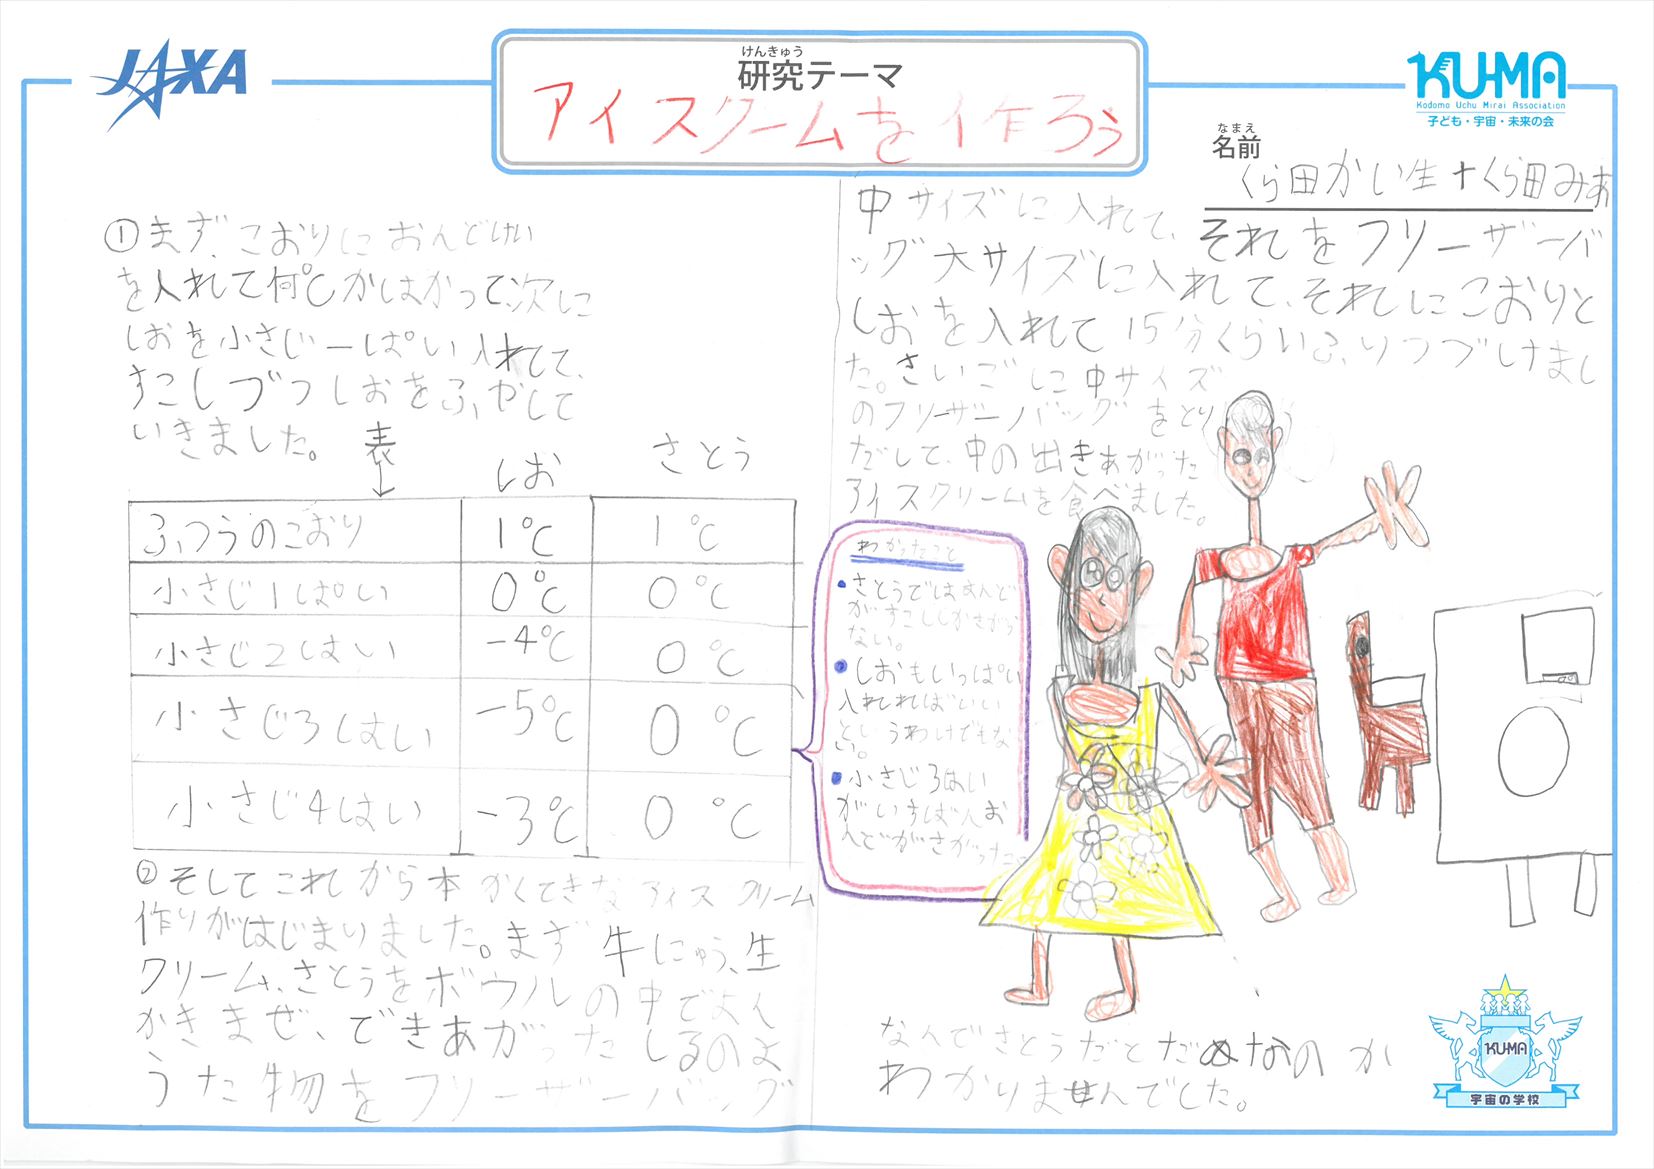 JAXA
けんきゅう
研究テーマ
アイスクームを作ろう
KU-MA
Kodomo Uchu Mirai Association
子ども・宇宙・未来の会
なまえ
名前
くら田かい生+くら田みお
①まず、こおりにおんどけい
を入れて何℃かはかって、次に
しおを小さじ一ぱい入れて、
すこしづつしおをふやして
いきました。
表
しお さとう
ふつうのこおり 1℃ 1℃
小さじ1ぱい 0℃ 0℃
小さじ2はい -4℃ 0℃
小さじ3ばい -5℃ 0℃
小さじ4はい -3℃ 0℃
②そしてこれから本かくてきなアイスクリーム
作りがはじまりました。まず牛にゅう、生
クリーム、さとうをボウルの中でよく
かきまぜ、できあがったしるのよ
うた物をフリーザーバッグ
中サイズに入れて、それをフリーザーバ
ッグ大サイズに入れて、それにこおりと
しおを入れて15分くらいふりつづけまし
た。さいごに中サイズ
のフリーザーバッグをとり
だして、中の出きあがった
アイスクリームを食べました。
わかったこと
●さとうではおんど
がすこししかさがら
ない。
●しおもいっぱい
入れればいい
というわけでもな
い。
●小さじ3ばい
がいちばんお
んどがさがった
なんでさとうだとだめなのか
わかりませんでした。
KU-MA
宇宙の学校